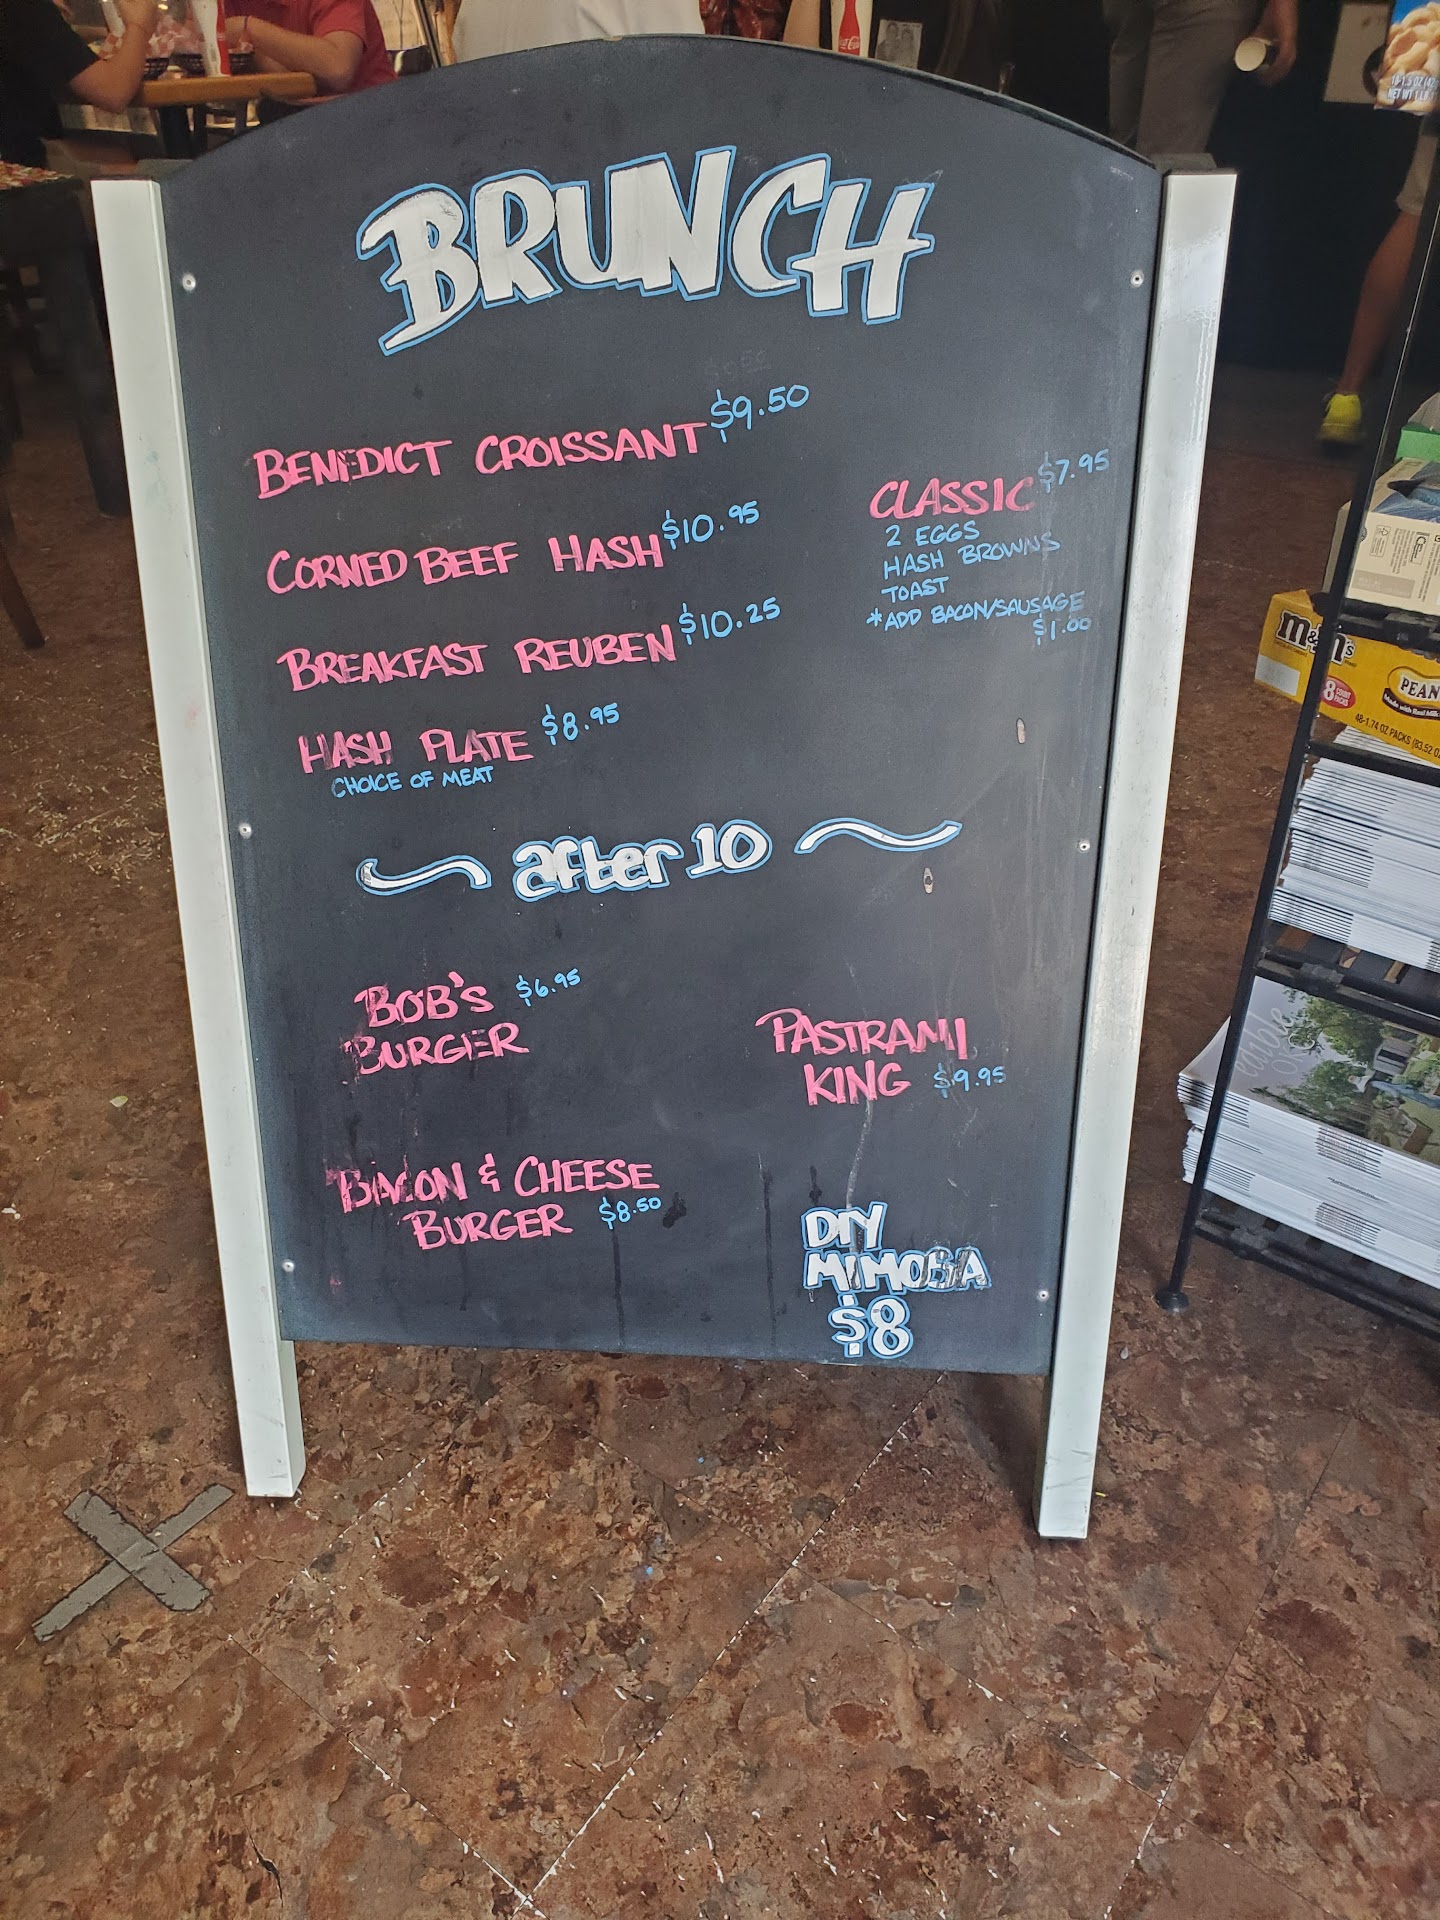 BRUNCH
BENEDICT CROISSANT $9.50
CORNED BEEF HASH $10.95
BREAKFAST REUBEN $10.25
HASH PLATE $8.95
CHOICE OF MEAT
CLASSIC $7.95
2 EGGS
HASH BROWNS
TOAST
*ADD BACON/SAUSAGE
$1.00
after 10
BOB'S $6.95
BURGER
PASTRAMI
KING $9.95
BACON & CHEESE
BURGER $8.50
DIY
MIMOSA
$8
Coca-Cola
NET WT 1 LB
m&m's
PEAN
48-1.74 OZ PACKS (83.52 O
edible